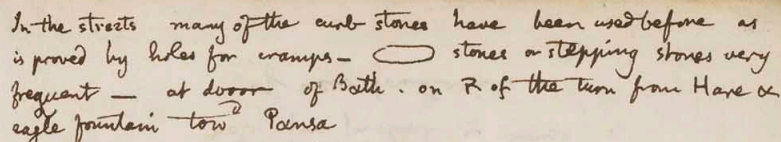 In the streets many of the curb stones have been used before as
is proved by holes for cramps — stones or stepping stones very
frequent — at dooor of Bath. on R of the turn from Hare &
eagle fountain towd Pansa